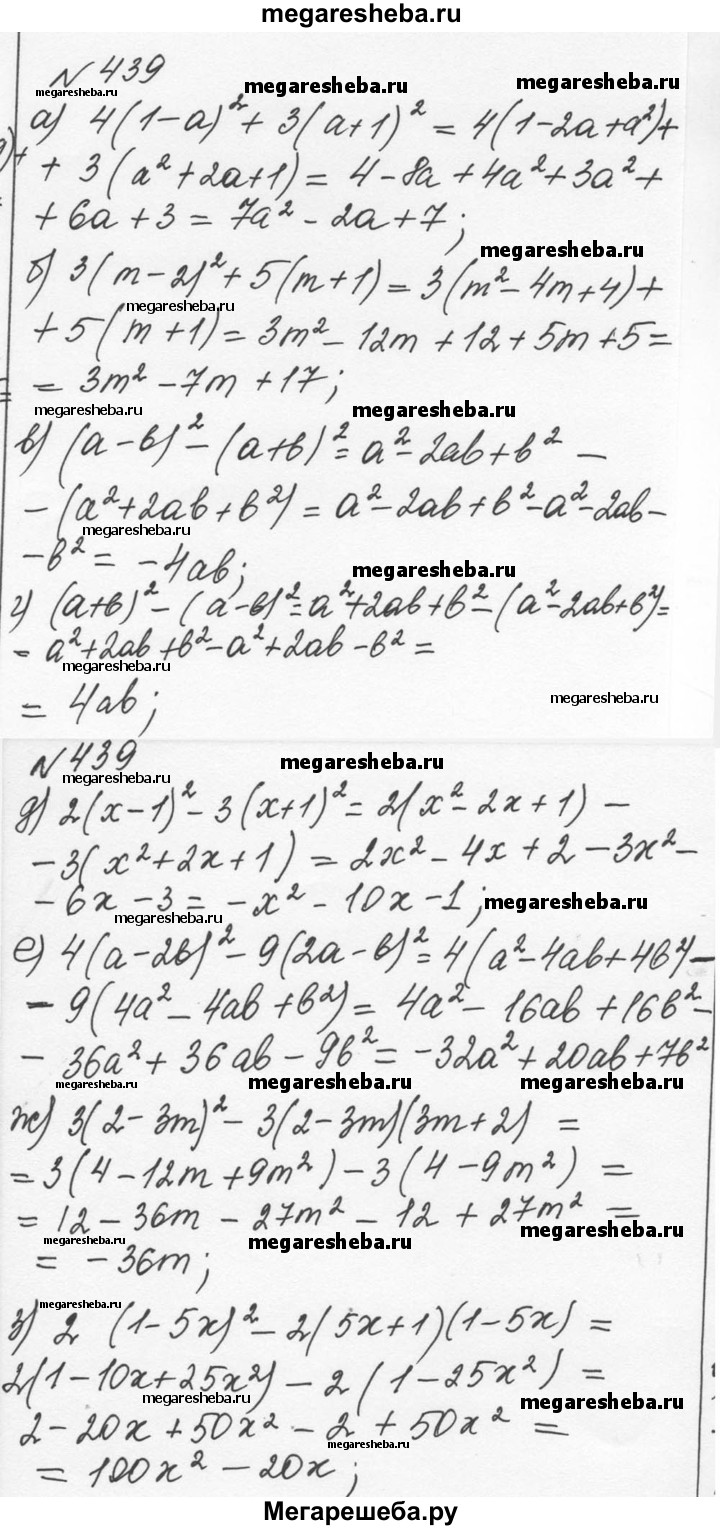 megaresheba.ru
№ 439
megaresheba.ru megaresheba.ru megaresheba.ru
а) 4(1-a)² + 3(a+1)² = 4(1-2a+a²)+
+ 3(a²+2a+1) = 4-8a+4a²+3a²+
+6a+3 = 7a²-2a+7;
megaresheba.ru
б) 3(m-2)²+5(m+1) = 3(m²-4m+4)+
megaresheba.ru
+5(m+1) = 3m²-12m+12+5m+5=
= 3m²-7m+17;
megaresheba.ru megaresheba.ru
в) (a-b)²-(a+b)²=a²-2ab+b²-
-(a²+2ab+b²) = a²-2ab+b²-a²-2ab-
megaresheba.ru
-b² = -4ab;
megaresheba.ru
г) (a+b)²-(a-b)²=a²+2ab+b²-(a²-2ab+b²)=
= a²+2ab+b²-a²+2ab-b² =
megaresheba.ru
= 4ab;
megaresheba.ru
№ 439
megaresheba.ru megaresheba.ru
д) 2(x-1)²-3(x+1)²=2(x²-2x+1)-
-3(x²+2x+1) = 2x²-4x+2-3x²-
-6x-3 = -x²-10x-1;
megaresheba.ru megaresheba.ru
е) 4(a-2b)²-9(2a-b)²=4(a²-4ab+4b²)-
-9(4a²-4ab+b²) = 4a²-16ab+16b²-
-36a²+36ab-9b²=-32a²+20ab+7b²
megaresheba.ru megaresheba.ru megaresheba.ru
ж) 3(2-3m)²-3(2-3m)(3m+2) =
=3(4-12m+9m²)-3(4-9m²) =
=12-36m-27m²-12+27m² =
megaresheba.ru megaresheba.ru megaresheba.ru
= -36m;
megaresheba.ru
з) 2 (1-5x)²-2(5x+1)(1-5x) =
2(1-10x+25x²)-2(1-25x²) =
megaresheba.ru megaresheba.ru
2-20x+50x²-2+50x² =
megaresheba.ru
= 100x²-20x;
Мегарешеба.ру